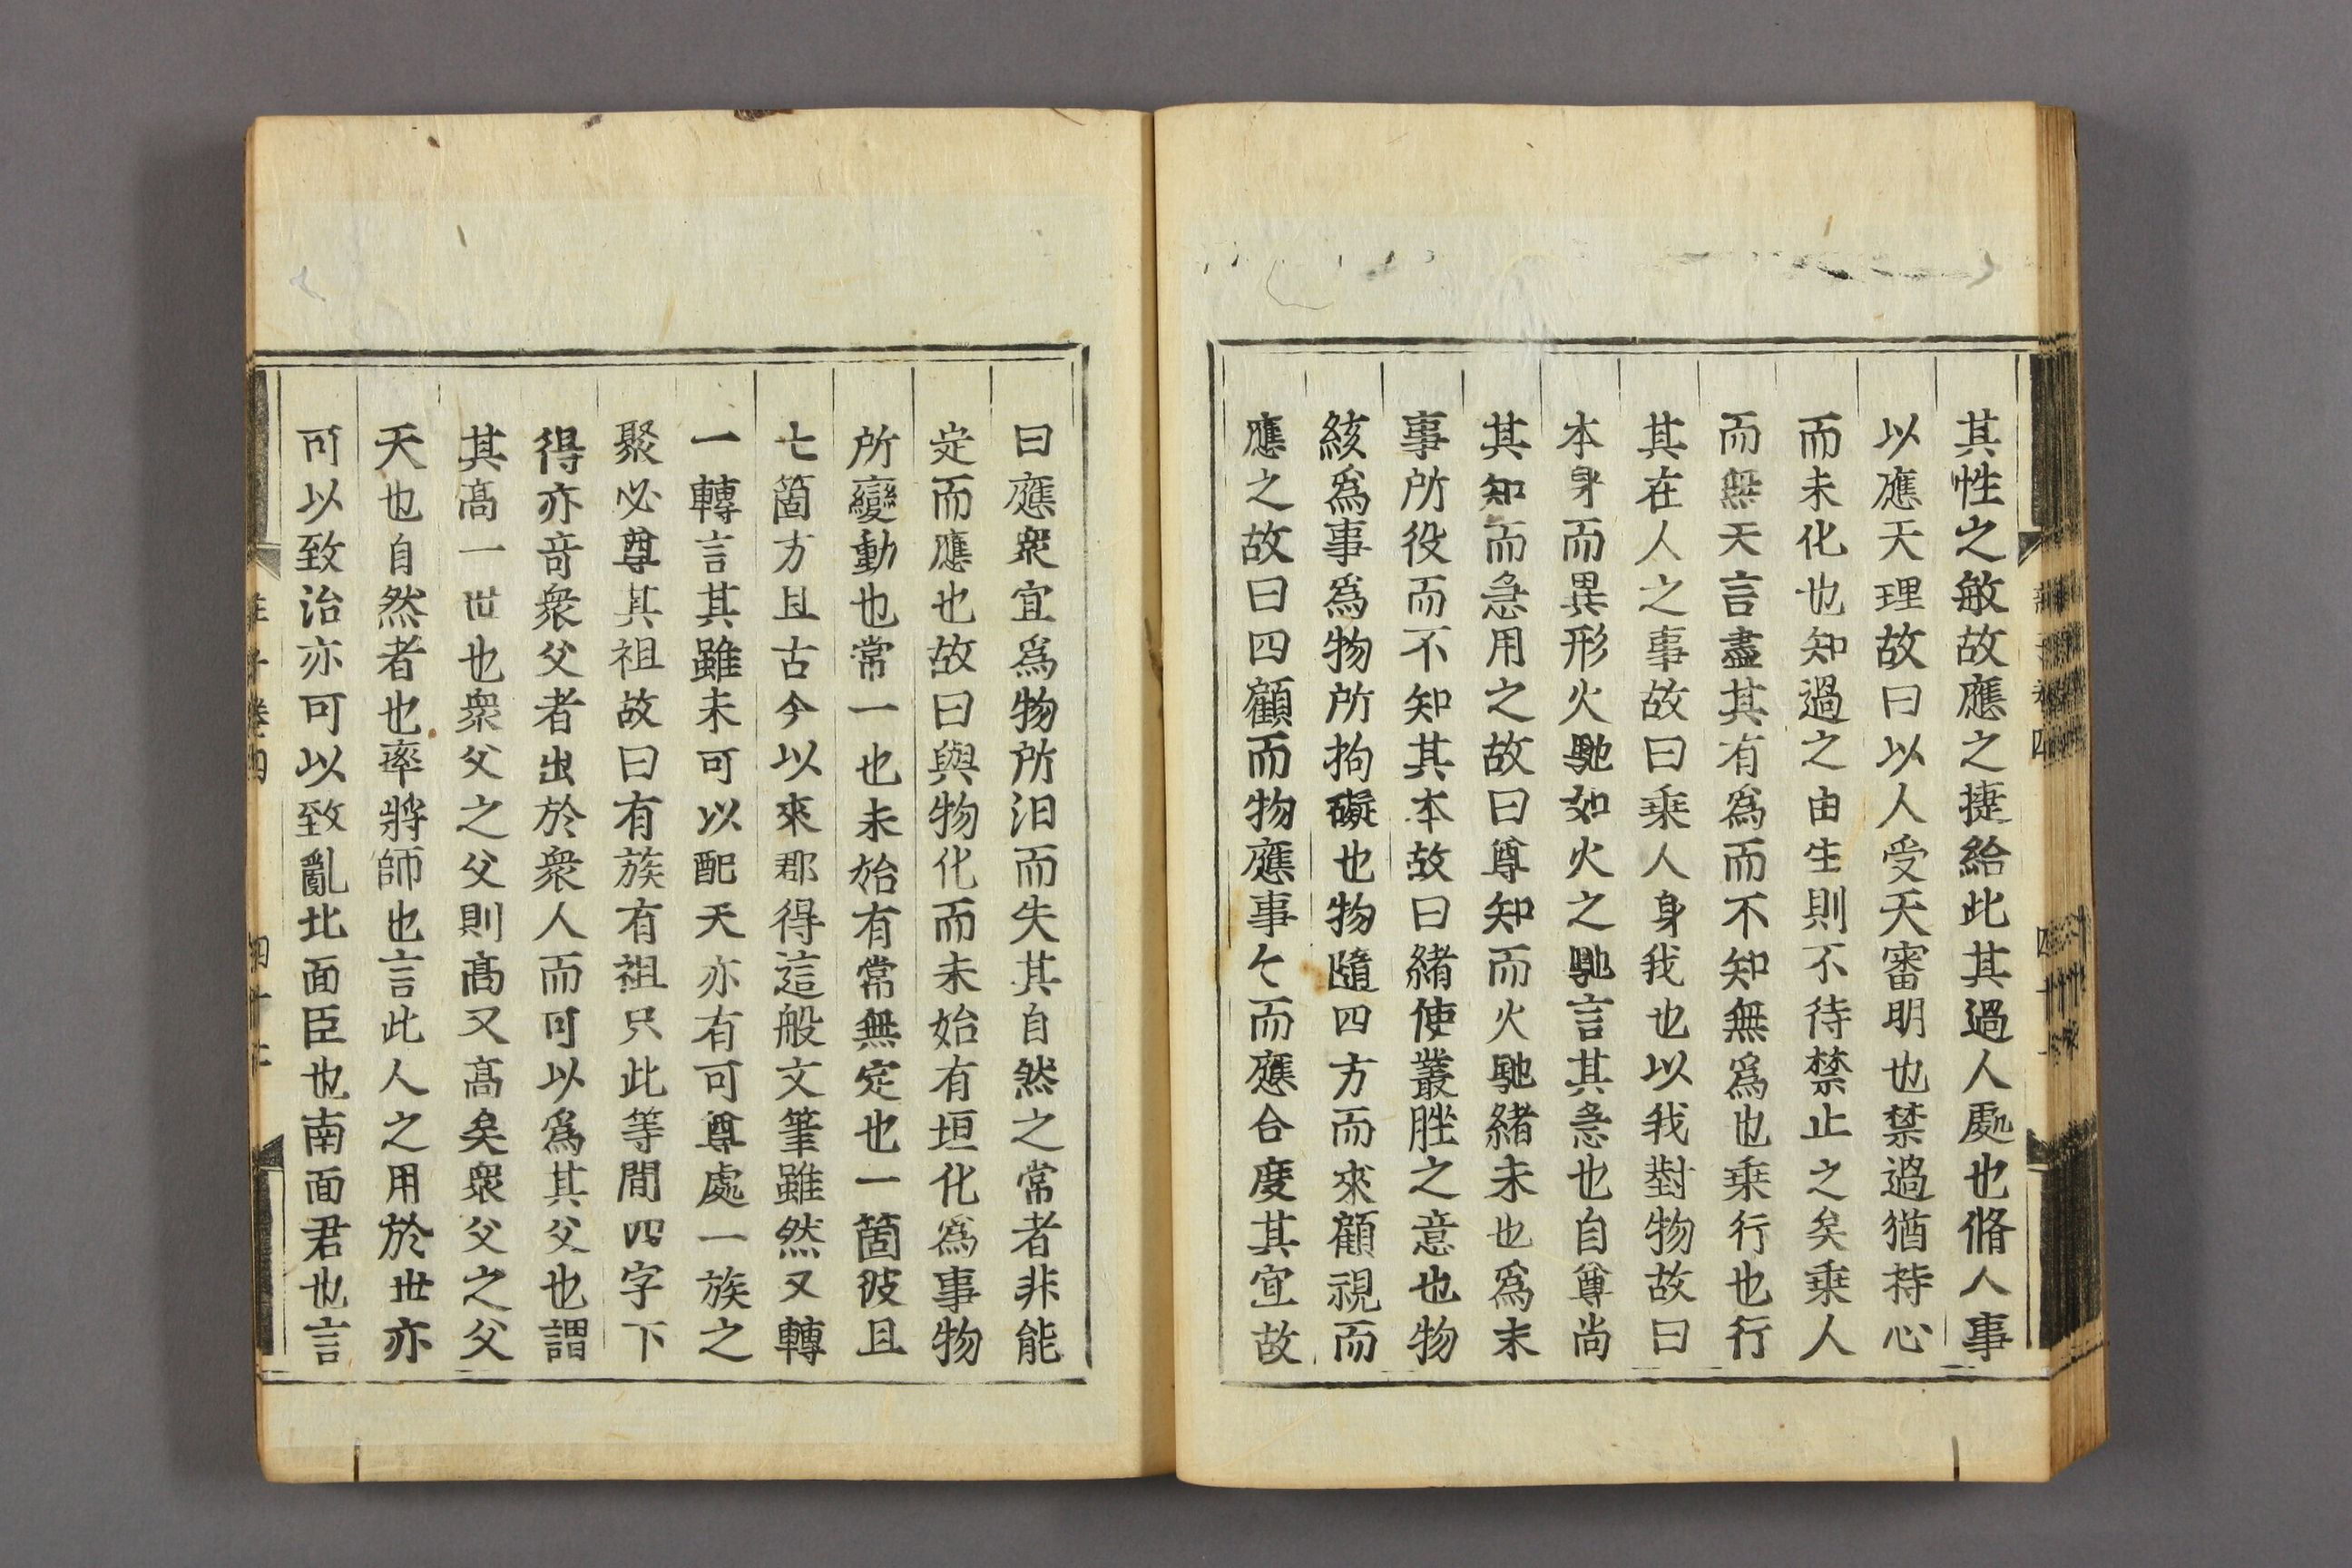 其性之敏故應之捷給此其過人處也脩人事
以應天理故曰以人受天審明也禁過猶持心
而未化也知過之由生則不待禁止之矣乗人
而無天言盡其有爲而不知無爲也乗行也行
其在人之事故曰乗人身我也以我對物故曰
本身而異形火馳如火之馳言其急也自尊尚
其知而急用之故曰尊知而火馳緒末也爲末
事所役而不知其本故曰緒使叢脞之意也物
絯爲事爲物所拘礙也物隨四方而來顧視而
應之故曰四顧而物應事〻而應合度其宜故
曰應衆宜爲物所汩而失其自然之常者非能
㝎而應也故曰與物化而未始有垣化爲事物
所變動也常一也未始有常無定也一箇彼且
七箇方且古今以來郡得這般文筆雖然又轉
一轉言其雖未可以配天亦有可尊處一族之
聚必尊其祖故曰有族有祖只此等間四字下
得亦竒衆父者出於衆人而可以爲其父也謂
其髙一世也衆父之父則髙又髙矣衆父之父
天也自然者也率將師也言此人之用於世亦
可以致治亦可以致亂北面臣也南面君也言
莊子卷四
四十七